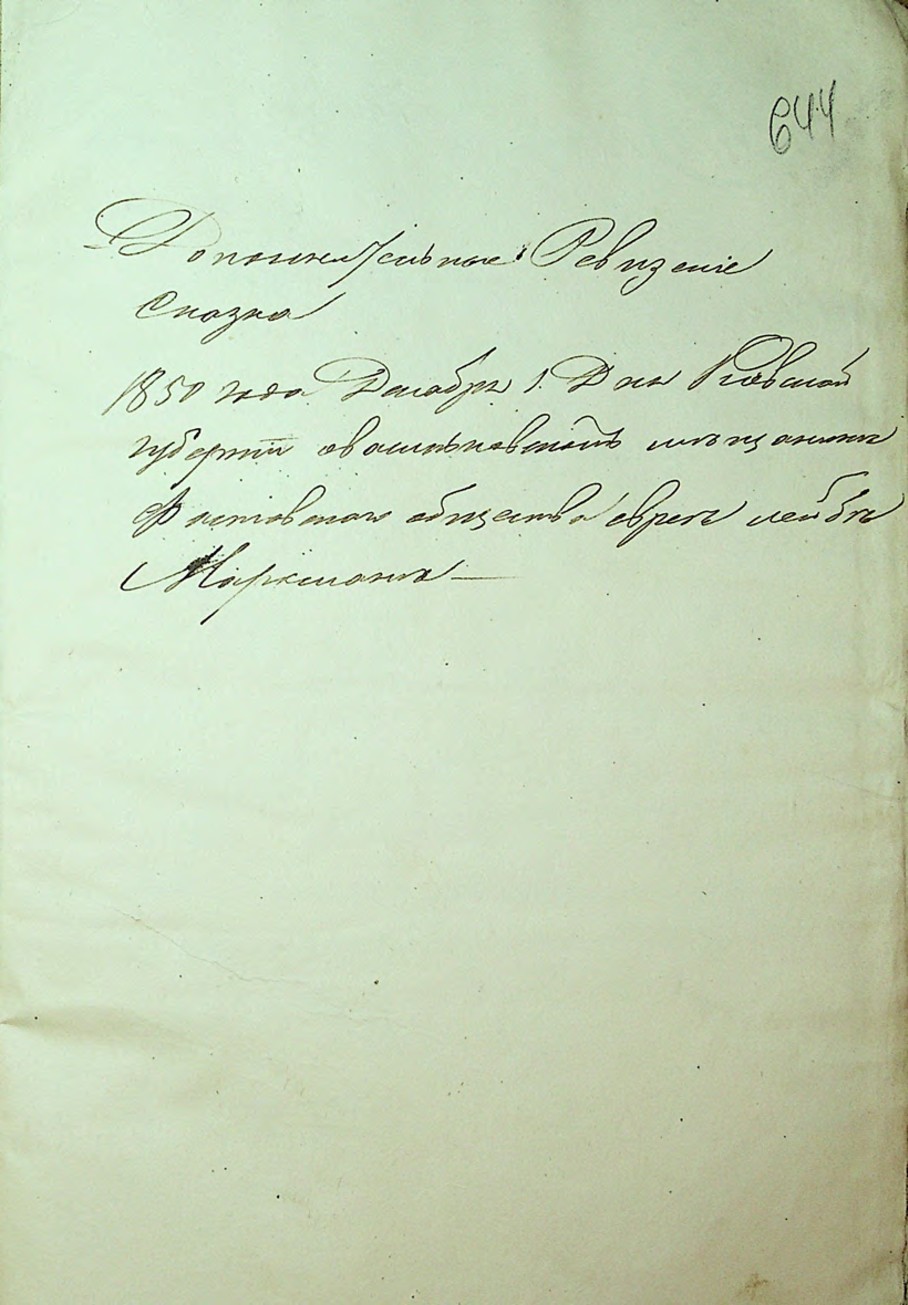 644
Дополнительные Ревизские
Сказка
1850 года Декабря 1. Дня Киевской
губернии мещанина
Фастовского общества еврея Лейбы
Марксмана —